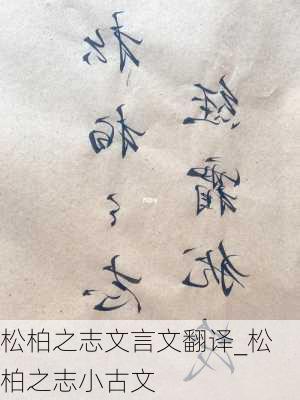 松柏之志
经霜犹茂
松柏之志文言文翻译_松
柏之志小古文